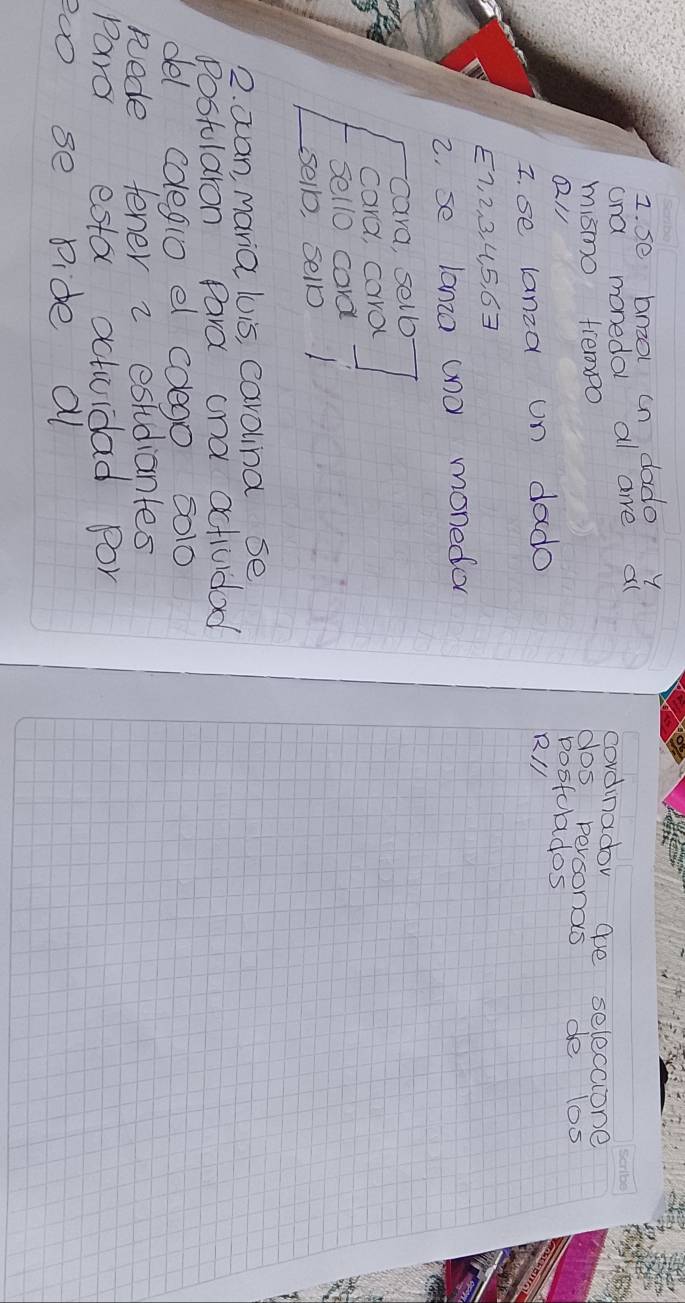 1. Se lanza un dado y
una moneda al aire al
mismo tiempo
R//
1. se lanza un dado
E1,2,3,4,5,6∃
2. se lanza una moneda
[cara, sello]
cara, cara]
[sello cara
[sello, sello]
2. Juan, Maria, luis, carolina se
Postularon Para una actividad
del colegio el colegio solo
Puede tener 2 estudiantes
Para esta actividad Por
eso se Pide al
cordinador que seleccione
dos personas de los
postulados
R//
Scribe